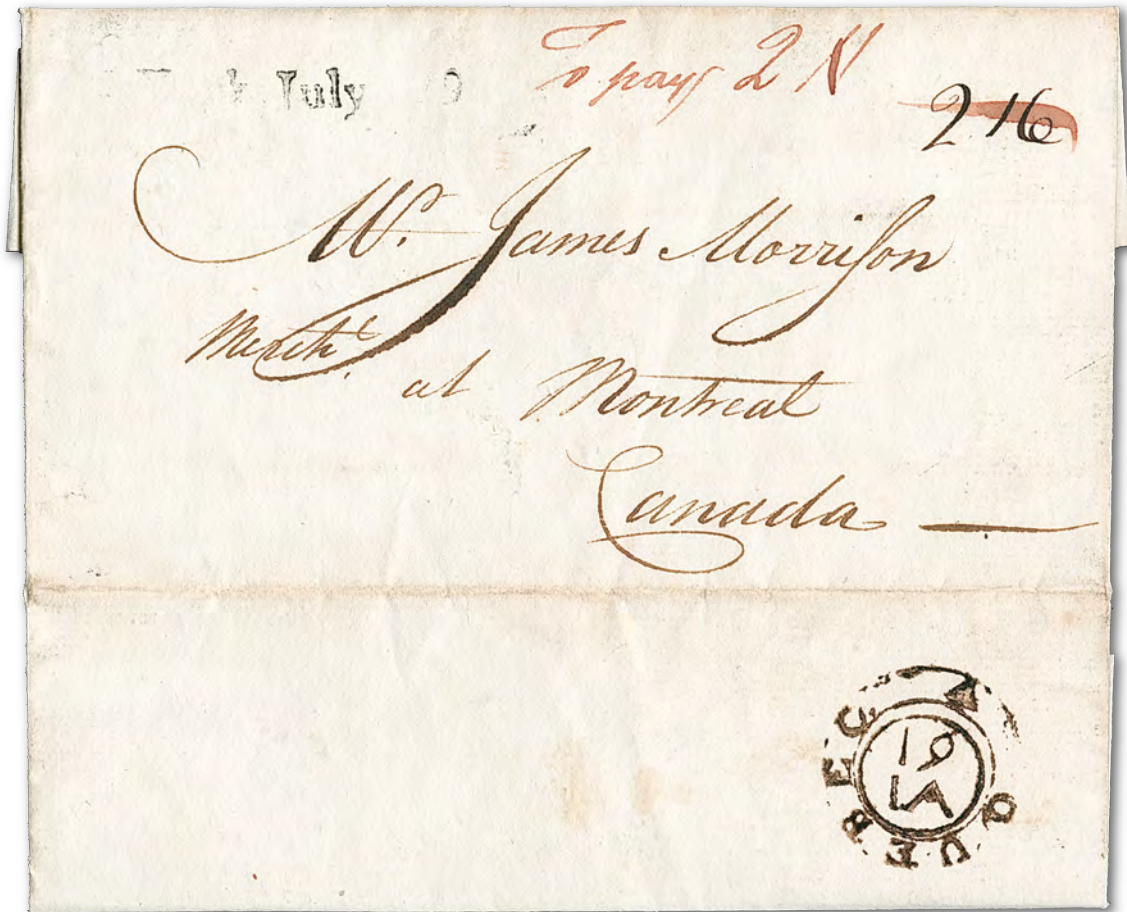 July
To pay 2 N
2 16
Mr. James Morriſon
Merch.t
at Montreal
Canada
QUEBEC
19